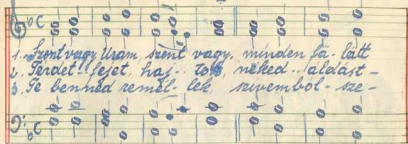 1. Szent vagy Uram, szent vagy, minden fa- latt
2. Térdet.. fejet, haj- tok, néked.. áldást -
3. Te benned remél- lek, szivemből - sze-